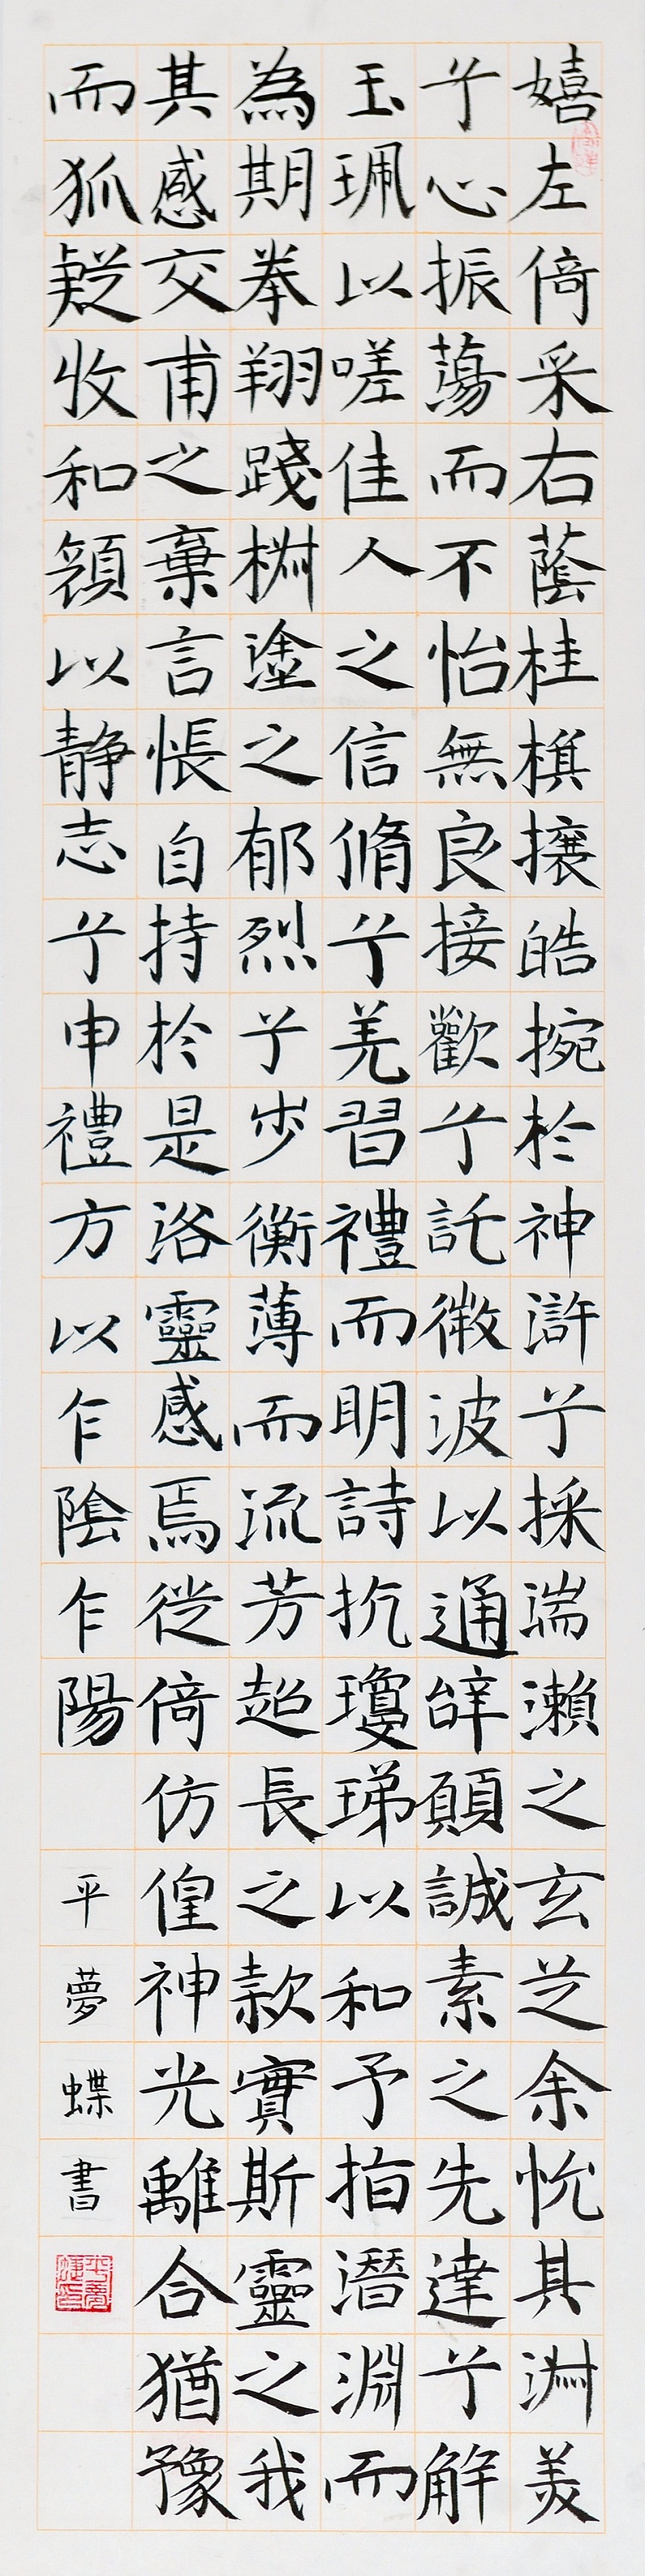 嬉左倚采右蔭桂旗攘皓捥於神滸兮採湍瀨之玄芝余悅其淑美
兮心振蕩而不怡無良接歡兮託微波以通辭願誠素之先達兮解
玉珮以嗟佳人之信脩兮羌習禮而明詩抗瓊珶以和予指潛淵而
為期拳翔踐椒塗之郁烈兮步衡薄而流芳超長之款實斯靈之我
其感交甫之棄言悵自持於是洛靈感焉徙倚仿偟神光離合猶豫
而狐疑收和顏以靜志兮申禮方以乍陰乍陽
平夢蝶書